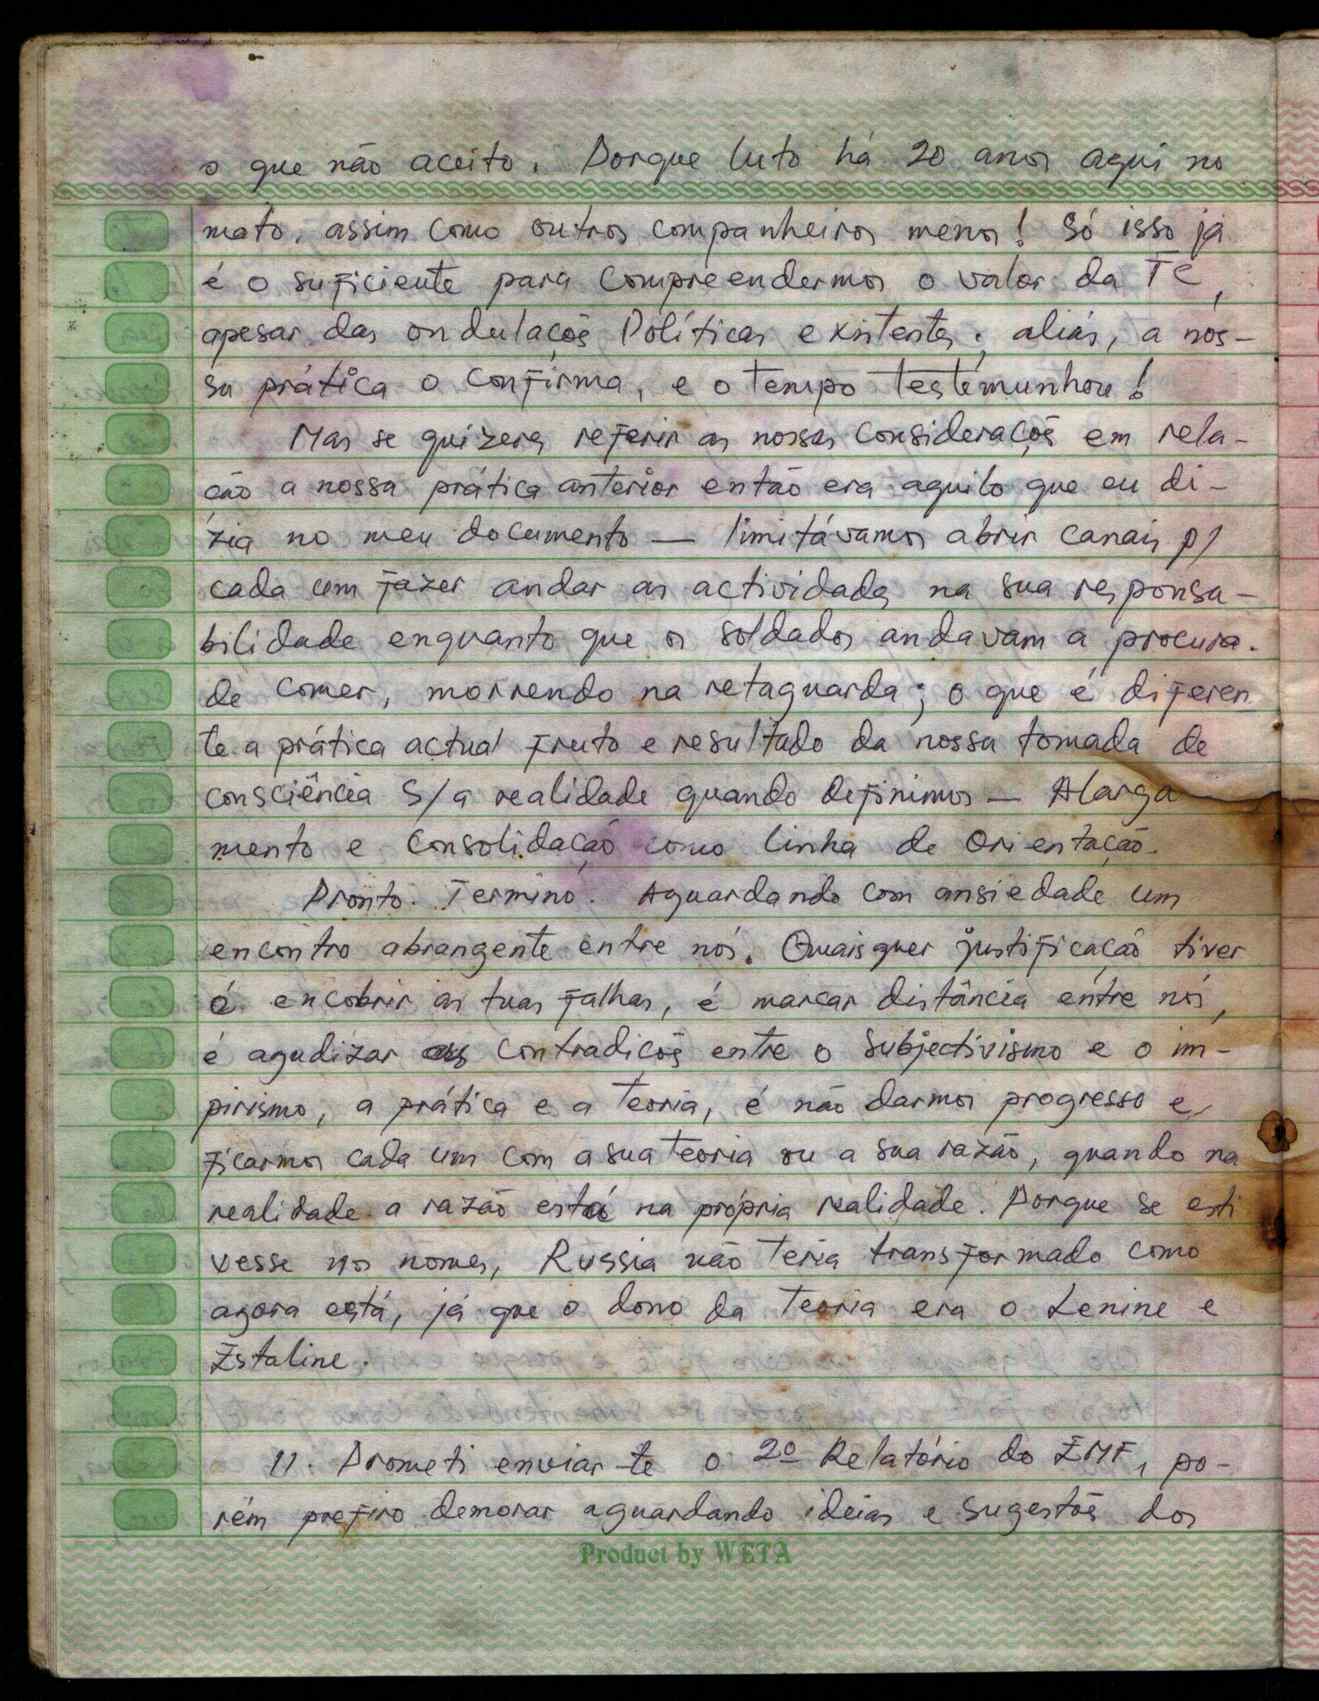 o que não aceito. Porque luto há 20 anos aqui no
mato, assim como outros companheiros menos! Só isso já
é o suficiente para compreendermos o valor da TC,
apesar das ondulações Políticas existentes; aliás, a nos-
sa prática o confirma, e o tempo testemunhou!
Mas se quizeres referir as nossas considerações em rela-
ção a nossa prática anterior então era aquilo que eu di-
zia no meu documento — limitávamos abrir canais p/
cada um fazer andar as actividades na sua responsa-
bilidade enquanto que os soldados andavam a procura
de comer, morrendo na retaguarda; o que é diferen
te a prática actual fruto e resultado da nossa tomada de
consciência S/ a realidade quando definimos — Alarga
mento e Consolidação como linha de Orientação.
Pronto. Termino. Aguardando com ansiedade um
encontro abrangente entre nós. Quaisquer justificação tiver
é encobrir as tuas falhas, é marcar distância entre nós,
é agudizar as contradições entre o subjectivismo e o im-
pirismo, a prática e a teoria, é não darmos progresso e
ficarmos cada um com a sua teoria ou a sua razão, quando na
realidade a razão está na própria realidade. Porque se esti
vesse nos nomes, Russia não teria transformado como
agora está, já que o dono da teoria era o Lenine e
Estaline.
11. Prometi enviar-te o 2º Relatório do EMF, po-
rém prefiro demorar aguardando ideias e sugestões dos
Product by WETA